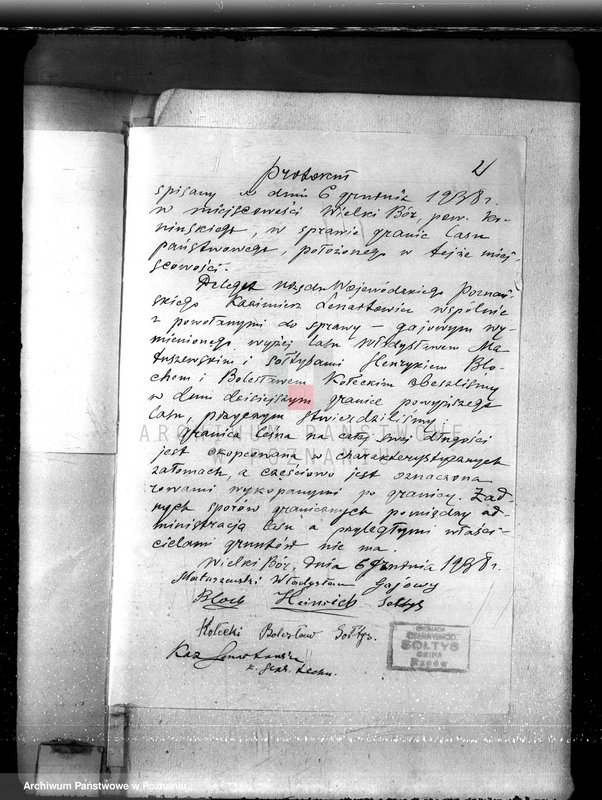 2
Protokuł
spisany w dniu 6 grudnia 1938 r.
w miejscowości Wielki Bór, pow. Ko-
nińskiego, w sprawie granic lasu
państwowego, położonego w tejże miej-
scowości.
Delegat Urzędu Wojewódzkiego Poznań-
skiego Kazimierz Lenartowicz wspólnie
z powołanymi do sprawy – gajowym wy-
mienionego wyżej lasu Władysławem Ma-
tuszewskim i sołtysami Henrykiem Blo-
chem i Bolesławem Kołeckim obeszliśmy
w dniu dzisiejszym granice powyższego
lasu, przyczym stwierdziliśmy
granica leśna na całej swej długości
jest okopcowana w charakterystycznych
załomach, a częściowo jest oznaczona
rowami wykopanymi po granicy. Żad-
nych sporów granicznych pomiędzy ad-
ministracją lasu a przyległymi właści-
cielami gruntów nie ma.
Wielki Bór, dnia 6 grudnia 1938 r.
Matuszewski Władysław Gajowy
Bloch Heinrich Sołtys
Kołecki Bolesław Sołtys.
Kaz Lenartowicz
GROMADA
SOŁTYS
GMINA
Rzgów
ARCHIWUM PAŃSTWOWE
W POZNANIU
Archiwum Państwowe w Poznaniu